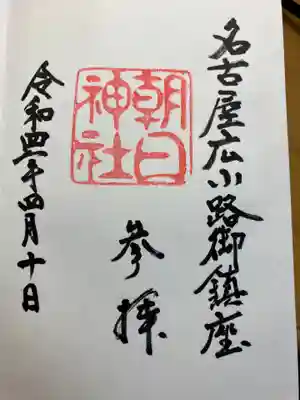 名古屋広小路御鎮座
朝日神社
参拝
令和四年四月十日